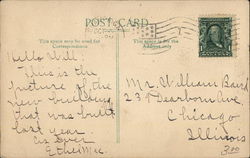 POST CARD
This space may be used for
Correspondence
This space is for the
Address only
Hello Will:
This is the
picture of the
new building
that was built
last year.
As Ever
Ethel Mc.
Mr. William Baird
Dearborn Ave
Chicago
Illinois